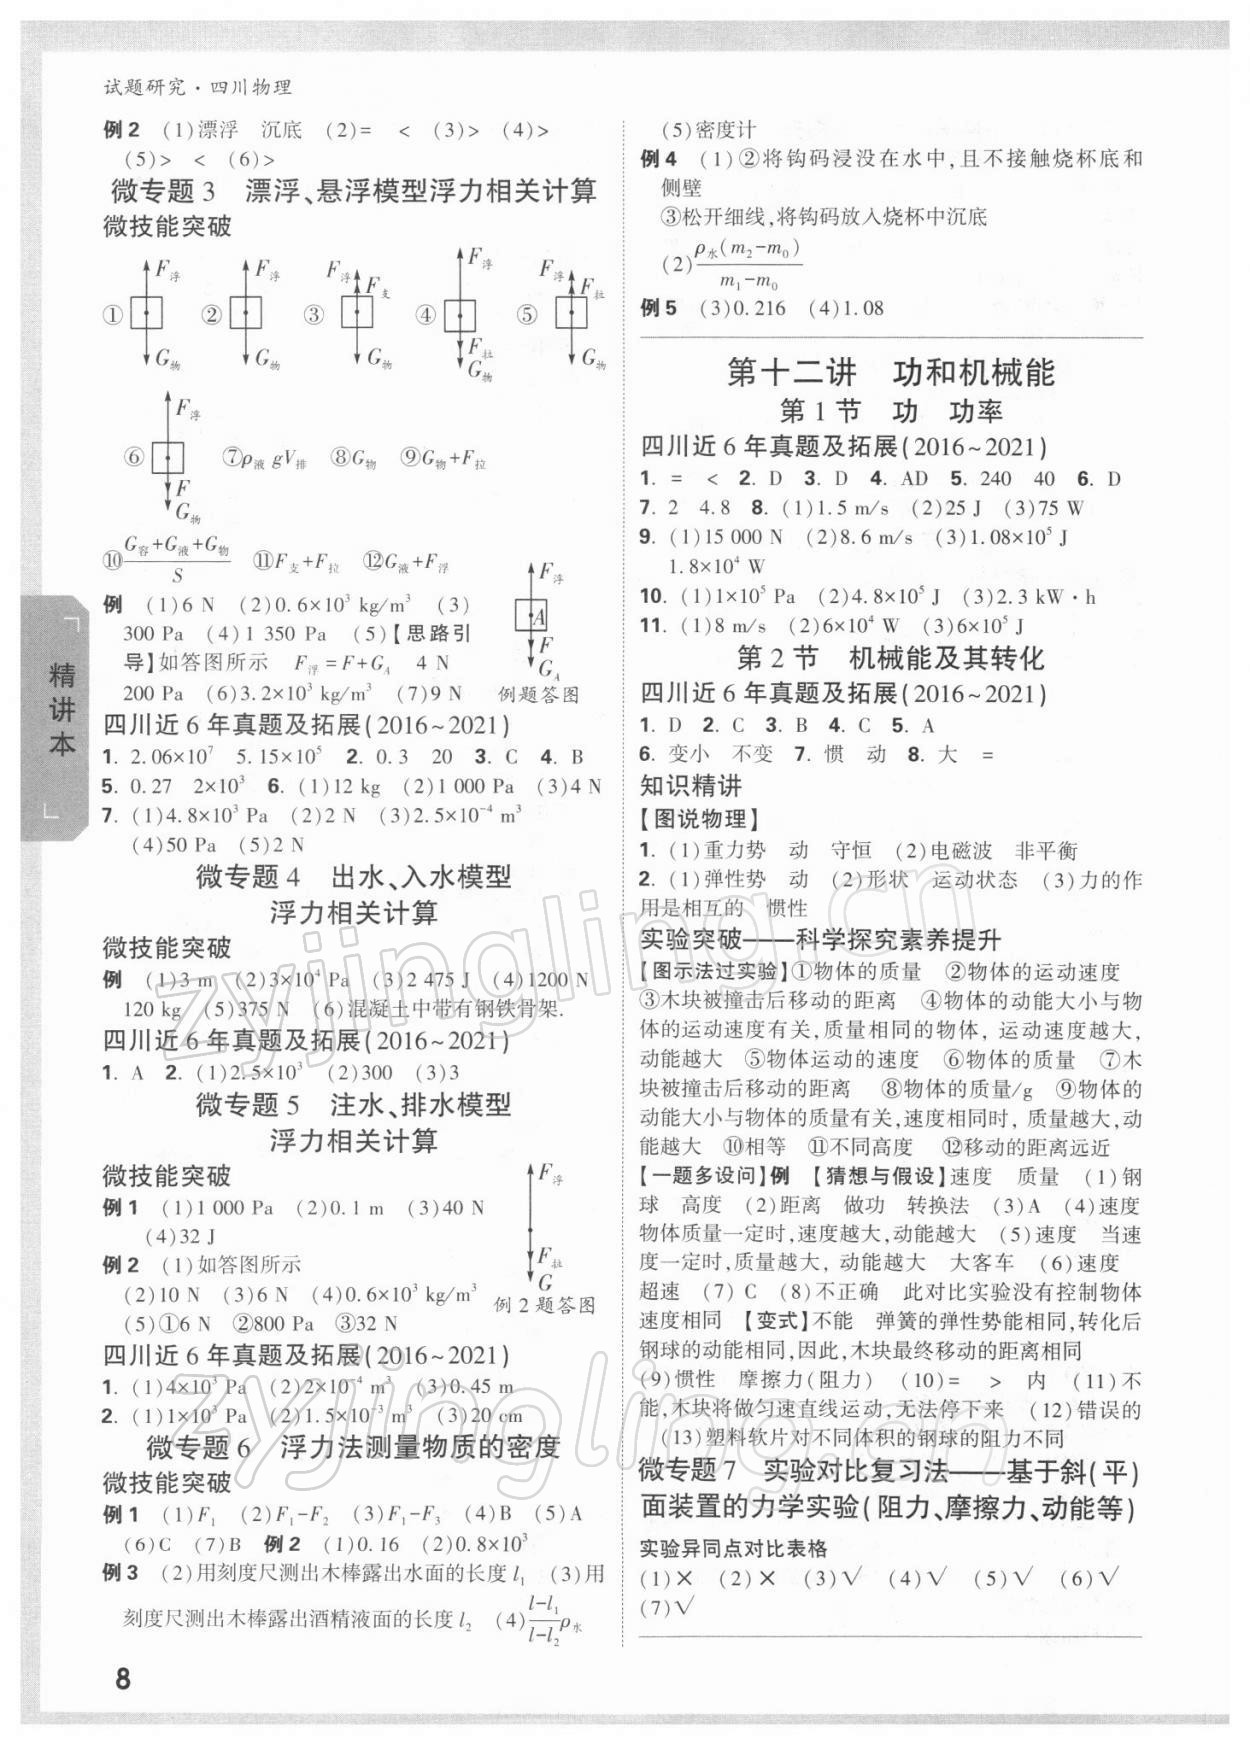 试题研究·四川物理
例2 (1)漂浮 沉底 (2)= < (3)> (4)>
(5)> < (6)>
微专题3 漂浮、悬浮模型浮力相关计算
微技能突破
① F浮 G物 ② F浮 G物 ③ F浮 F支 G物 ④ F浮 F拉 G物 ⑤ F浮 F拉 G物
⑥ F浮 F G物 ⑦ρ液gV排 ⑧G物 ⑨G物+F拉
⑩(G容+G液+G物)/S ⑪F支+F拉 ⑫G液+F浮
例 (1)6 N (2)0.6×10³ kg/m³ (3)
300 Pa (4)1 350 Pa (5)【思路引
导】如答图所示 F浮=F+G_A 4 N
200 Pa (6)3.2×10³ kg/m³ (7)9 N
F浮 A F G_A
例题答图
四川近6年真题及拓展(2016~2021)
1. 2.06×10⁷ 5.15×10⁵ 2. 0.3 20 3. C 4. B
5. 0.27 2×10³ 6. (1)12 kg (2)1 000 Pa (3)4 N
7. (1)4.8×10³ Pa (2)2 N (3)2.5×10⁻⁴ m³
(4)50 Pa (5)2 N
微专题4 出水、入水模型
浮力相关计算
微技能突破
例 (1)3 m (2)3×10⁴ Pa (3)2 475 J (4)1200 N
120 kg (5)375 N (6)混凝土中带有钢铁骨架.
四川近6年真题及拓展(2016~2021)
1. A 2. (1)2.5×10³ (2)300 (3)3
微专题5 注水、排水模型
浮力相关计算
微技能突破
例1 (1)1 000 Pa (2)0.1 m (3)40 N
(4)32 J
例2 (1)如答图所示
(2)10 N (3)6 N (4)0.6×10³ kg/m³
(5)①6 N ②800 Pa ③32 N
F浮 F拉 G
例2题答图
四川近6年真题及拓展(2016~2021)
1. (1)4×10³ Pa (2)2×10⁻⁴ m³ (3)0.45 m
2. (1)1×10³ Pa (2)1.5×10⁻³ m³ (3)20 cm
微专题6 浮力法测量物质的密度
微技能突破
例1 (1)F₁ (2)F₁-F₂ (3)F₁-F₃ (4)B (5)A
(6)C (7)B 例2 (1)0.16 (2)0.8×10³
例3 (2)用刻度尺测出木棒露出水面的长度l₁ (3)用
刻度尺测出木棒露出酒精液面的长度l₂ (4)(l-l₁)/(l-l₂)ρ水
8
(5)密度计
例4 (1)②将钩码浸没在水中,且不接触烧杯底和
侧壁
③松开细线,将钩码放入烧杯中沉底
(2)ρ水(m₂-m₀)/(m₁-m₀)
例5 (3)0.216 (4)1.08
第十二讲 功和机械能
第1节 功 功率
四川近6年真题及拓展(2016~2021)
1. = < 2. D 3. D 4. AD 5. 240 40 6. D
7. 2 4.8 8. (1)1.5 m/s (2)25 J (3)75 W
9. (1)15 000 N (2)8.6 m/s (3)1.08×10⁵ J
1.8×10⁴ W
10. (1)1×10⁵ Pa (2)4.8×10⁵ J (3)2.3 kW·h
11. (1)8 m/s (2)6×10⁴ W (3)6×10⁵ J
第2节 机械能及其转化
四川近6年真题及拓展(2016~2021)
1. D 2. C 3. B 4. C 5. A
6. 变小 不变 7. 惯 动 8. 大 =
知识精讲
【图说物理】
1. (1)重力势 动 守恒 (2)电磁波 非平衡
2. (1)弹性势 动 (2)形状 运动状态 (3)力的作
用是相互的 惯性
实验突破——科学探究素养提升
【图示法过实验】①物体的质量 ②物体的运动速度
③木块被撞击后移动的距离 ④物体的动能大小与物
体的运动速度有关,质量相同的物体,运动速度越大,
动能越大 ⑤物体运动的速度 ⑥物体的质量 ⑦木
块被撞击后移动的距离 ⑧物体的质量/g ⑨物体的
动能大小与物体的质量有关,速度相同时,质量越大,动
能越大 ⑩相等 ⑪不同高度 ⑫移动的距离远近
【一题多设问】例 【猜想与假设】速度 质量 (1)钢
球 高度 (2)距离 做功 转换法 (3)A (4)速度
物体质量一定时,速度越大,动能越大 (5)速度 当速
度一定时,质量越大,动能越大 大客车 (6)速度
超速 (7)C (8)不正确 此对比实验没有控制物体
速度相同 【变式】不能 弹簧的弹性势能相同,转化后
钢球的动能相同,因此,木块最终移动的距离相同
(9)惯性 摩擦力(阻力) (10)= > 内 (11)不
能,木块将做匀速直线运动,无法停下来 (12)错误的
(13)塑料软片对不同体积的钢球的阻力不同
微专题7 实验对比复习法——基于斜(平)
面装置的力学实验(阻力、摩擦力、动能等)
实验异同点对比表格
(1)× (2)× (3)√ (4)√ (5)√ (6)√
(7)√
精讲本
zyjingling.cn
zyjingling.cn